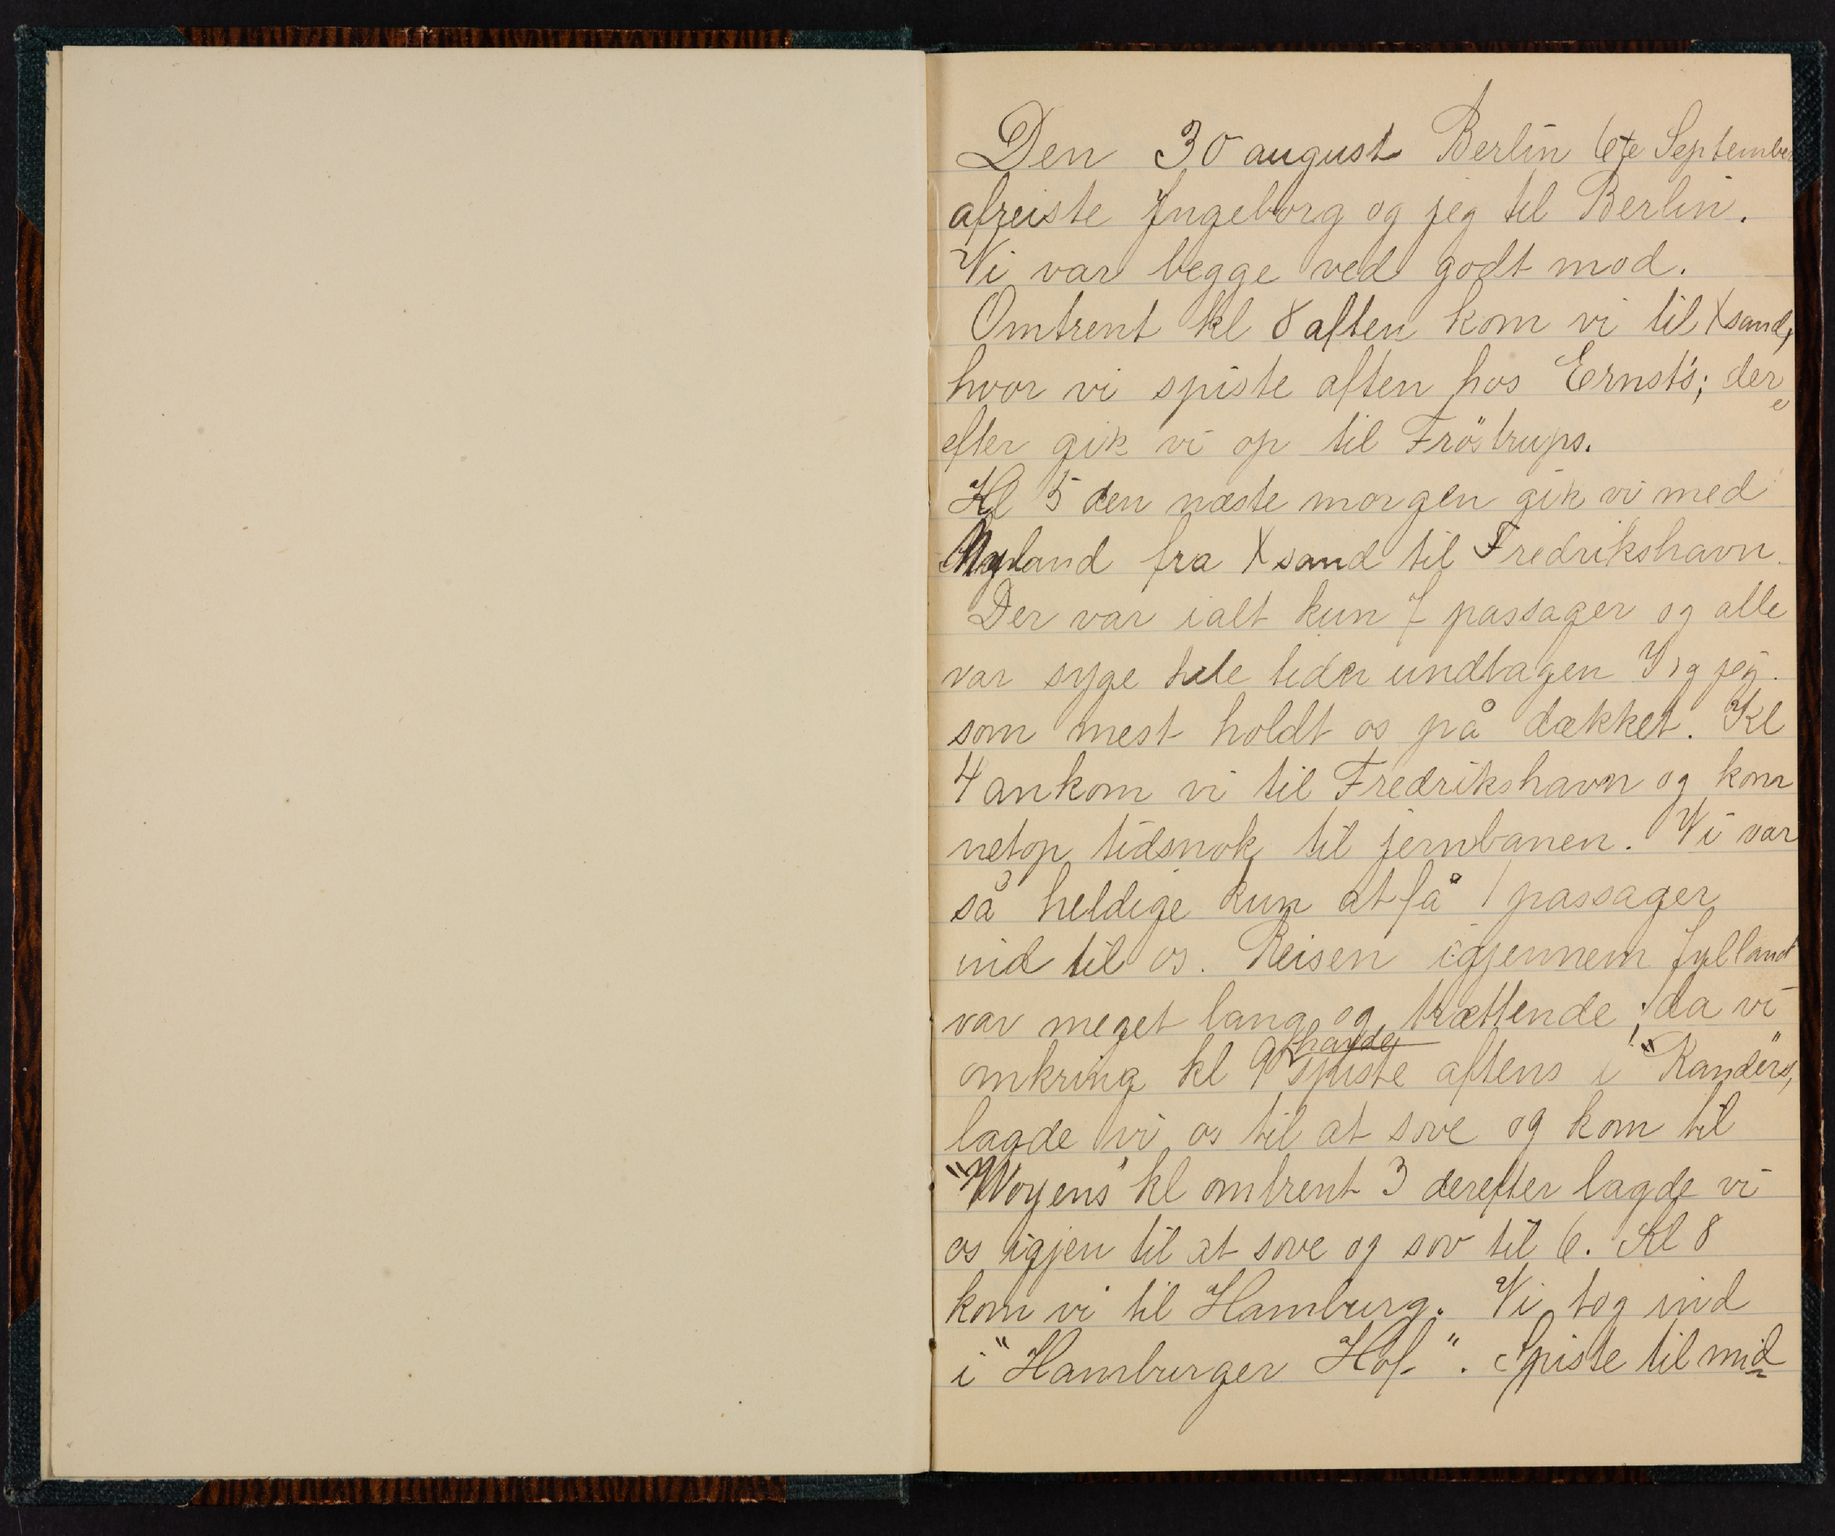 Den 30 august Berlin 6te September
afreiste Ingeborg og jeg til Berlin.
Vi var begge ved godt mod.
Omtrent kl 8 aften kom vi til Xsand,
hvor vi spiste aften hos Ernst's; der„
efter gik vi op til Fröstrups.
Kl 5 den næste morgen gik vi med
fra Xsand til Fredrikshavn.
Der var ialt kun 7 passager og alle
var syge hele tiden undtagen I og jeg.
som mest holdt os på dækket. Kl
4 ankom vi til Fredrikshavn og kom
netop tidsnok til jernbanen. Vi var
så heldige kun at få 1 passager
ind til os. Reisen igjennem Jylland
var meget lang og trættende; da vi
havde
omkring kl 9 spiste aftens i "Randers,
lagde vi os til at sove og kom til
"Woyens" kl omtrent 3 derefter lagde vi
os igjen til at sove og sov til 6. Kl 8
kom vi til Hamburg. Vi tog ind
i "Hamburger Hof". Spiste til mid=